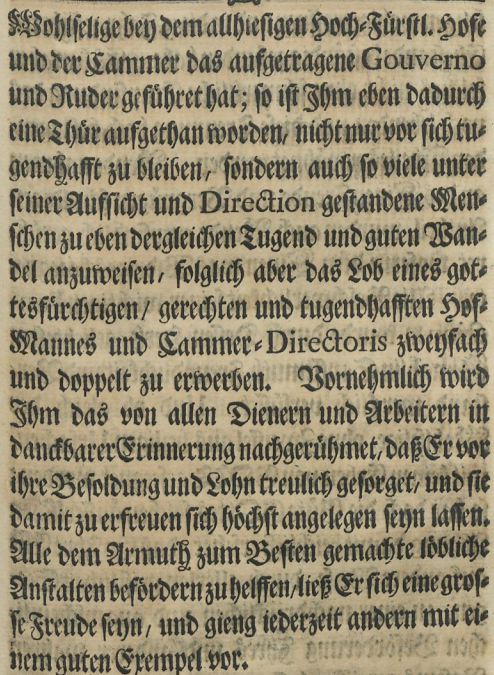 Wohlselige bey dem allhiesigen Hoch-Fürstl. Hofe
und der Cammer das aufgetragene Gouverno
und Ruder geführet hat; so ist Ihm eben dadurch
eine Thür aufgethan worden, nicht nur vor sich tu-
gendhafft zu bleiben, sondern auch so viele unter
seiner Aufsicht und Direction gestandene Men-
schen zu eben dergleichen Tugend und guten Wan-
del anzuweisen, folglich aber das Lob eines got-
tesfürchtigen/ gerechten und tugendhafften Hof-
Mannes und Cammer-Directoris zweyfach
und doppelt zu erwerben. Vornehmlich wird
Ihm das von allen Dienern und Arbeitern in
danckbarer Erinnerung nachgerühmet, daß Er vor
ihre Besoldung und Lohn treulich gesorget, und sie
damit zu erfreuen sich höchst angelegen seyn lassen.
Alle dem Armuth zum Besten gemachte löbliche
Anstalten befördern zu helffen/ ließ Er sich eine gros-
se Freude seyn, und gieng iederzeit andern mit ei-
nem guten Exempel vor.